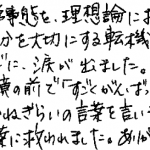 事態を、理想論にお
分を大切にする転機
どに、涙が出ました。
鏡の前で「すごくがんばっ
かねぎらいの言葉を言い
葉に救われました。あり